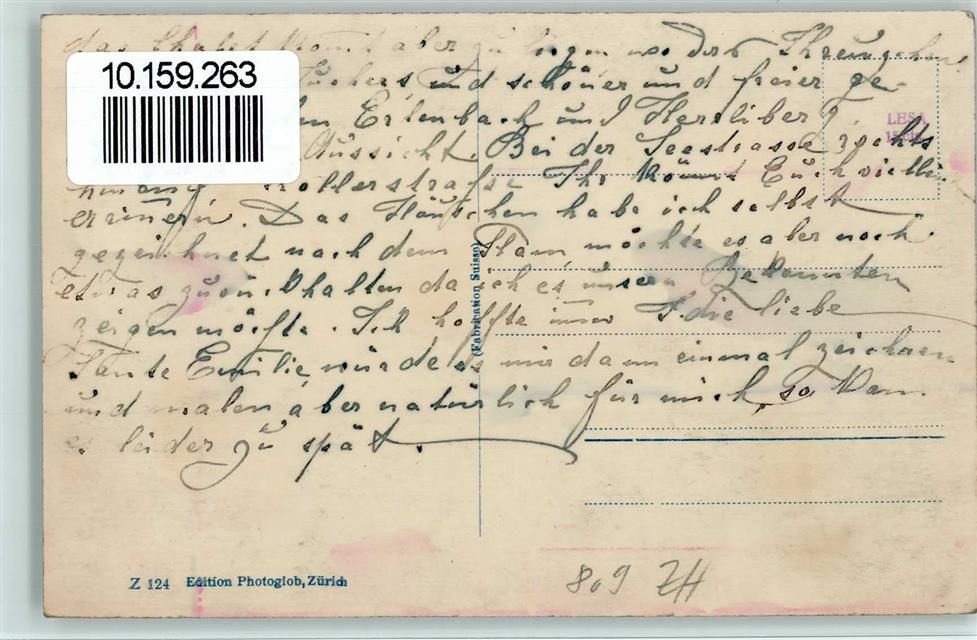 das Chalet kommt aber zu liegen wo der
10.159.263
und schöner und freier ge-
Erlenbach und Herrliberg.
LESA
Aussicht. Bei der Seestrasse rechts
Ihr könnt Euch vielleicht
erinern. Das Häuschen habe ich selbst
gezeichnet nach dem Plan, möchte es aber noch
etwas zurückhalten da ich es unsern Bekannten
zeigen möchte. Ich hoffte immer die liebe
Tante Emilie würde es mir dann einmal zeichnen
und malen, aber natürlich für mich, so kam
es leider zu spät.
(Fabrication Suisse)
Z 124 Edition Photoglob, Zürich
809 ZH